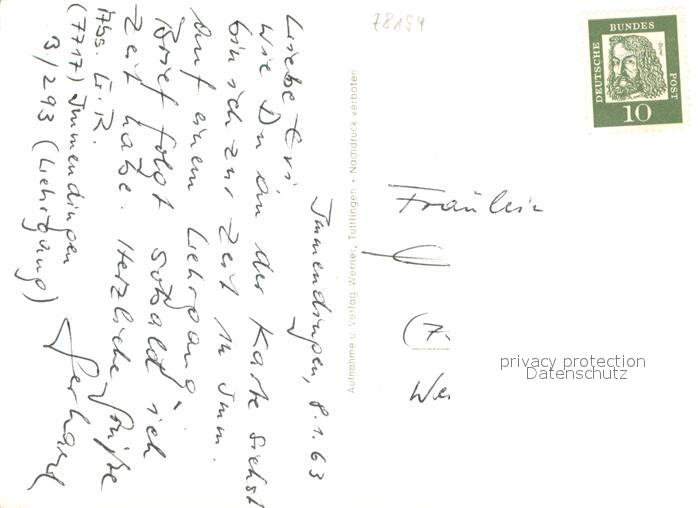 78194
DEUTSCHE
BUNDES
POST
Dürer
10
Immendingen, 8.1.63
Liebe Evi
wie Du an der Karte siehst
bin ich zur Zeit in Imm.
auf einem Lehrgang.
Brief folgt sobald ich
Zeit habe. Herzliche Grüße
Gerhard
Abs. G. R.
(7717) Immendingen
3/293 (Lehrgang)
Aufnahme u. Verlag Werner, Tuttlingen - Nachdruck verboten
Fräulein
(7
We
privacy protection
Datenschutz